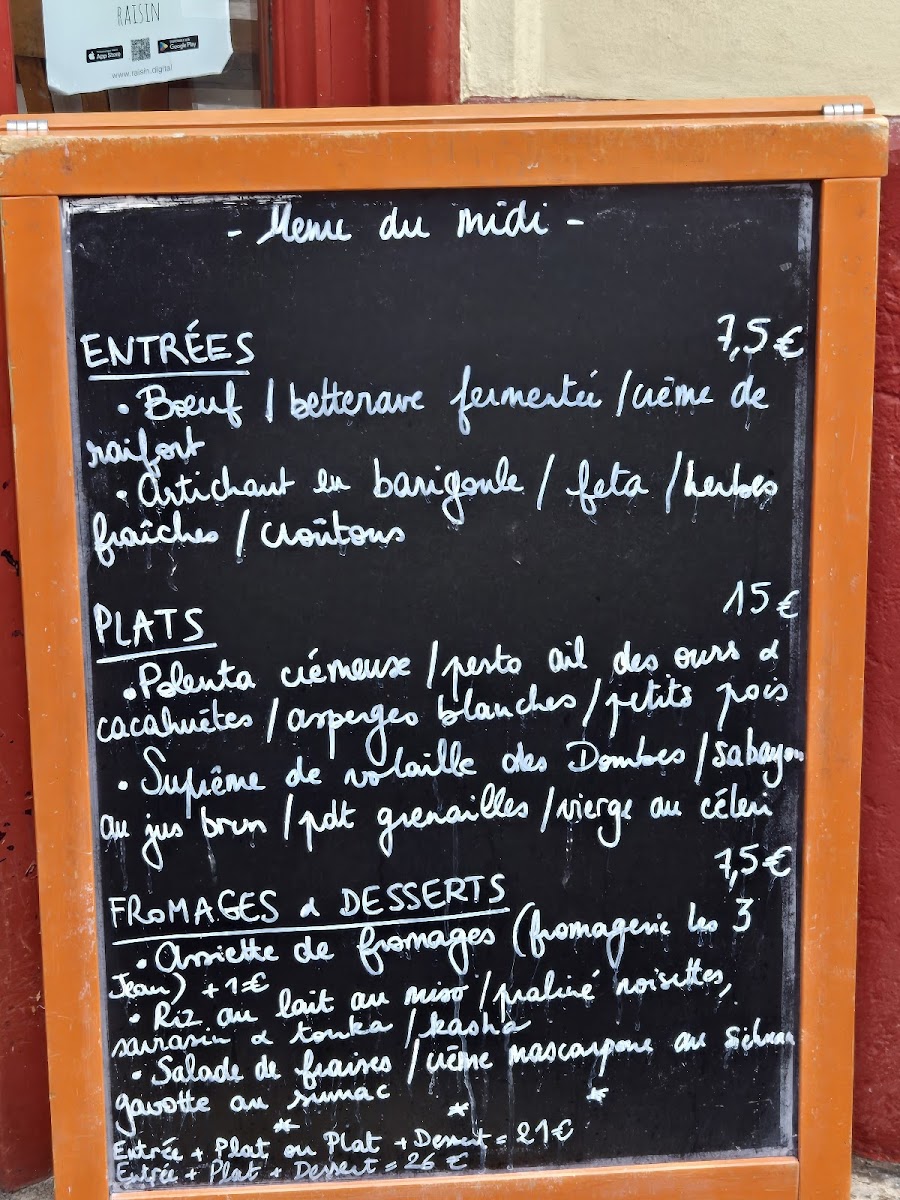 RAISIN
App Store
Google Play
www.raisin.digital
- Menu du midi -
ENTRÉES 7,5€
• Bœuf / betterave fermentée / crème de
raifort
• Artichaut en barigoule / feta / herbes
fraîches / croûtons
PLATS 15€
• Polenta crémeuse / pesto ail des ours &
cacahuètes / asperges blanches / petits pois
• Suprême de volaille des Dombes / sabayon
au jus brun / pdt grenailles / vierge au céleri
7,5€
FROMAGES & DESSERTS
• Assiette de fromages (fromagerie les 3
Jean) + 1€
• Riz au lait au miso / praliné noisettes,
sarrasin & tonka / kasha
• Salade de fraises / crème mascarpone au Sichuan
gavotte au sumac
* * *
Entrée + Plat ou Plat + Dessert = 21€
Entrée + Plat + Dessert = 26 €